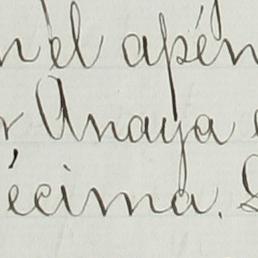 n el apén
r Anaya
écima.